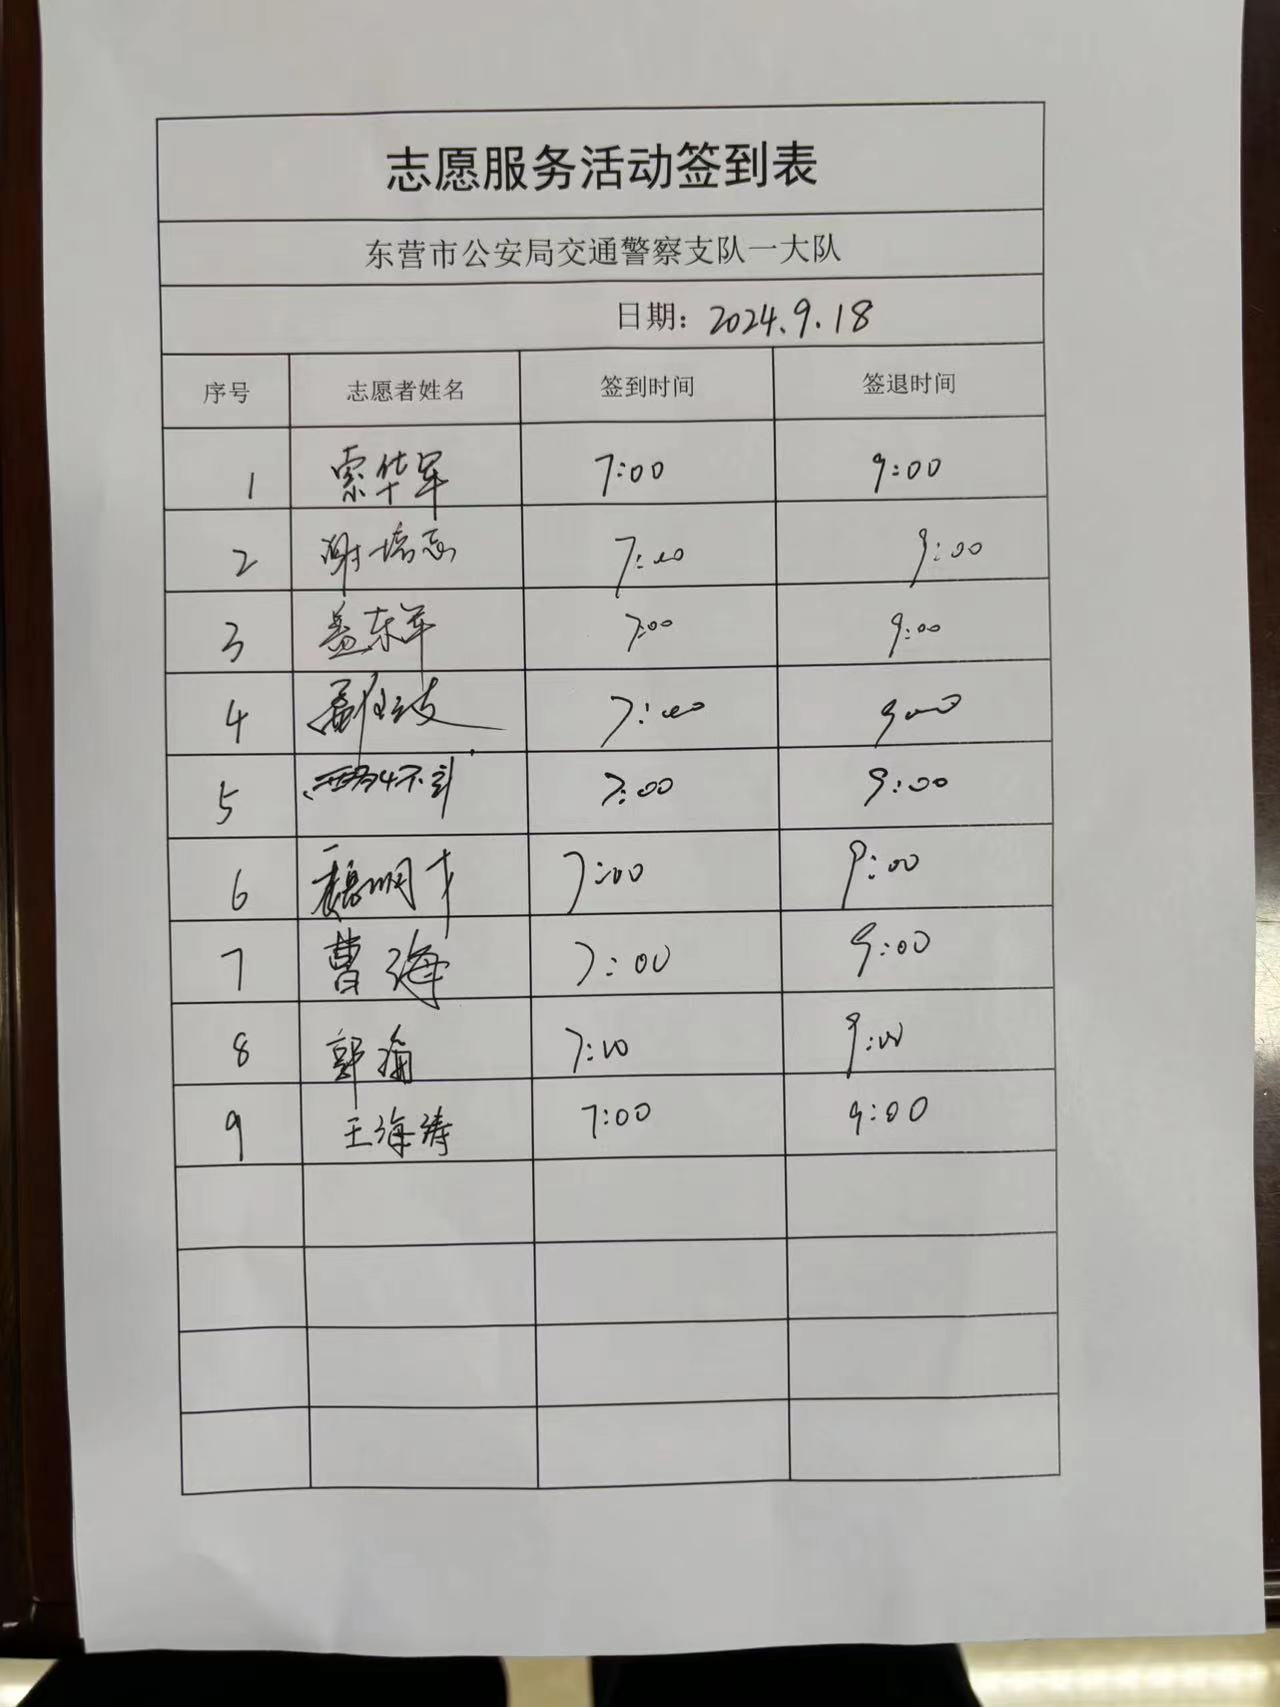 志愿服务活动签到表
东营市公安局交通警察支队一大队
日期：2024.9.18
序号 志愿者姓名 签到时间 签退时间
1 索华军 7:00 9:00
2 谢培志 7:00 9:00
3 盖东军 7:00 9:00
4 7:00 9:00
5 7:00 9:00
6 魏明才 7:00 9:00
7 曹海 7:00 9:00
8 郭 7:00 9:00
9 王海涛 7:00 9:00